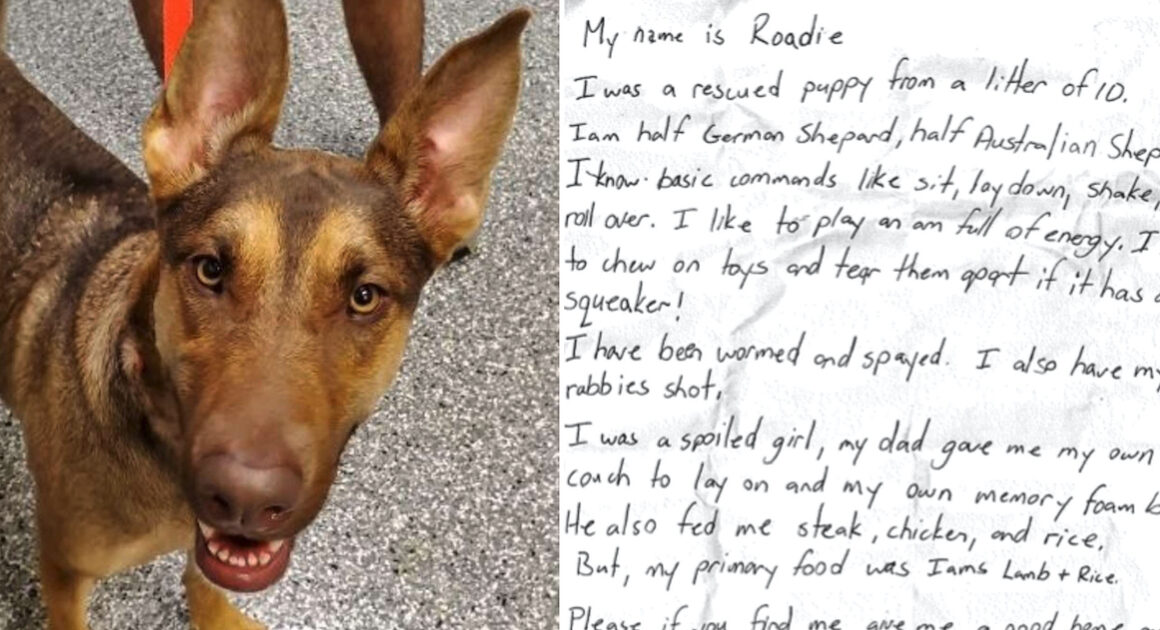 My name is Roadie
I was a rescued puppy from a litter of 10.
I am half German Shepard, half Australian Shep
I know basic commands like sit, lay down, shake,
roll over. I like to play an am full of energy. I
to chew on toys and tear them apart if it has a
squeaker!
I have been wormed and spayed. I also have my
rabbies shot,
I was a spoiled girl, my dad gave me my own
couch to lay on and my own memory foam b
He also fed me steak, chicken, and rice.
But, my primary food was Iams Lamb + Rice.
Please if you find me give me a good home